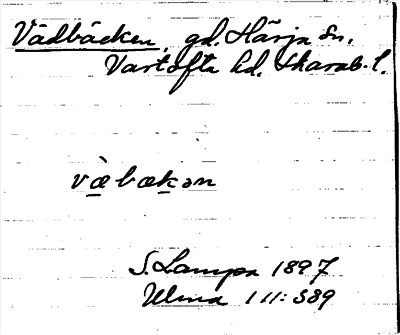 Vädbäcken, gd. Härja sn.
Vartofta hd. Skarab. l.
væ̀bækən
S. Lampa 1897
Ulma 111:589